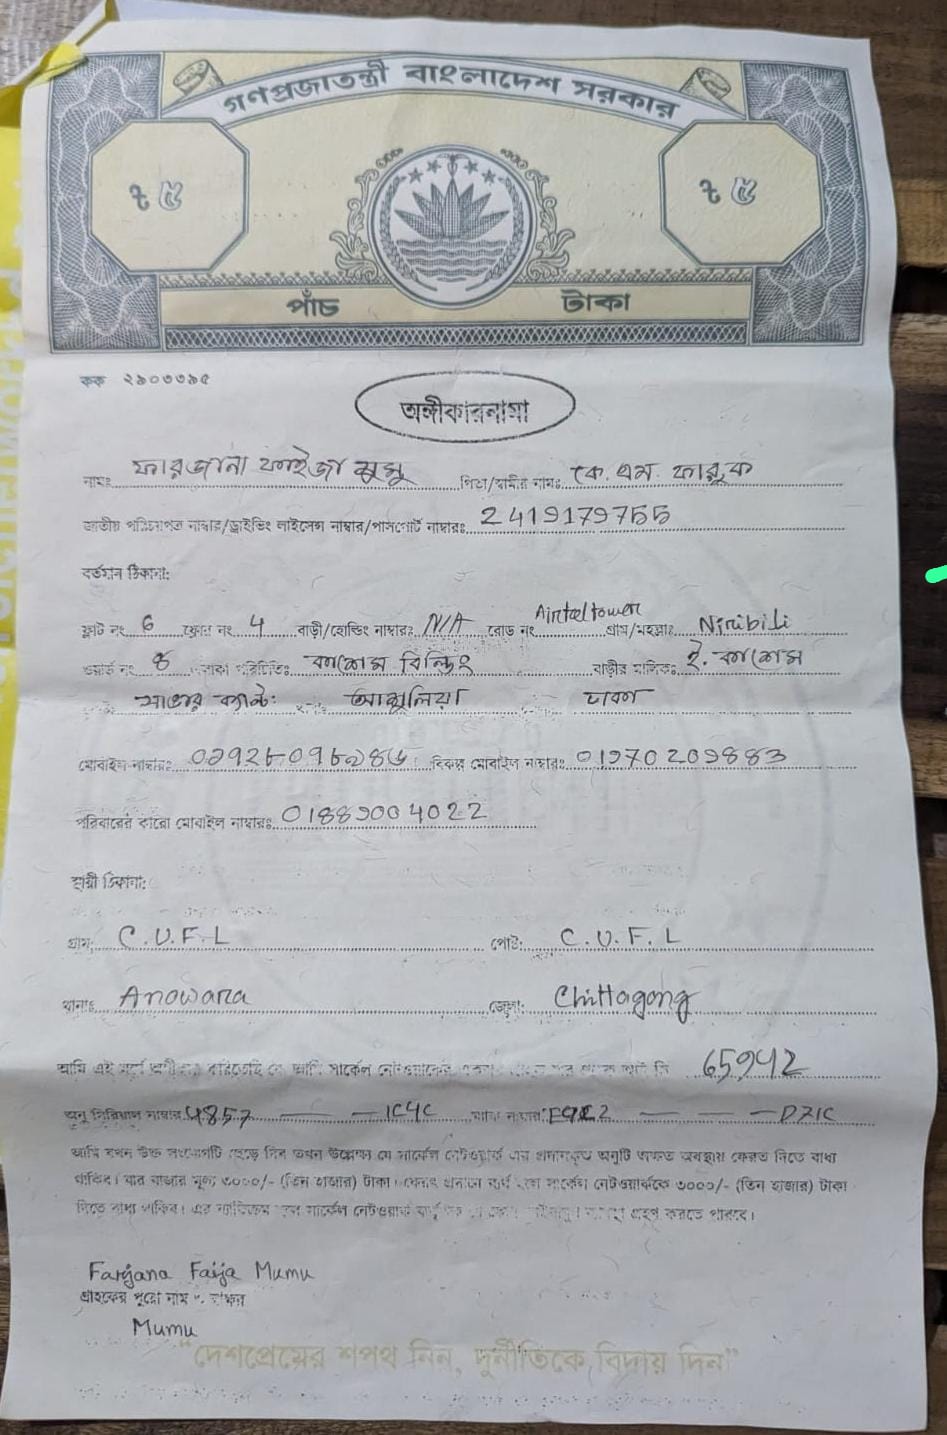 গণপ্রজাতন্ত্রী বাংলাদেশ সরকার
৳ ৫ ৳ ৫
পাঁচ টাকা
কক ২৯০৩৩৯৫
অঙ্গীকারনামা
নামঃ ফারজানা ফাইজা মুমু পিতা/স্বামীর নামঃ কে. এম. ফারুক
জাতীয় পরিচয়পত্র নাম্বার/ড্রাইভিং লাইসেন্স নাম্বার/পাসপোর্ট নাম্বারঃ 2419179755
বর্তমান ঠিকানা:
ফ্লাট নং 6 ফ্লোর নং 4 বাড়ী/হোল্ডিং নাম্বারঃ N/A রোড নং Airtel tower গ্রাম/মহল্লাঃ Niribili
ওয়ার্ড নং 8 বাসা পরিচিতিঃ কাশেম বিল্ডিং বাড়ীর মালিকঃ ই. কাশেম
সাভার ক্যান্ট: আশুলিয়া ঢাকা
মোবাইল নাম্বারঃ বিকল্প মোবাইল নাম্বারঃ 01970209883
পরিবারের কারো মোবাইল নাম্বারঃ 01889004022
স্থায়ী ঠিকানা:
গ্রাম: C.U.F.L পোষ্ট: C.U.F.L
থানাঃ Anowara জেলা: Chittagong
আমি এই মর্মে অঙ্গীকার করিতেছি যে আমি সার্কেল নেটওয়ার্কের আইডি 65942
অনু সিরিয়াল নাম্বার 4857 — — 1C4C ম্যাক নাম্বার — — — D71C
আমি যখন উক্ত সংযোগটি ছেড়ে দিব তখন উল্লেখ্য যে সার্কেল নেটওয়ার্ক এর প্রদানকৃত অনুটি অক্ষত অবস্থায় ফেরত দিতে বাধ্য
থাকিব। যার বাজার মূল্য ৩০০০/- (তিন হাজার) টাকা। ফেরৎ প্রদানে ব্যর্থ হলে সার্কেল নেটওয়ার্ককে ৩০০০/- (তিন হাজার) টাকা
দিতে বাধ্য থাকিব। এর ব্যতিক্রম হলে সার্কেল নেটওয়ার্ক কর্তৃপক্ষ গ্রহণ করতে পারবে।
Farjana Faija Mumu
গ্রাহকের পুরো নাম ও স্বাক্ষর
Mumu
"দেশপ্রেমের শপথ নিন, দুর্নীতিকে বিদায় দিন"